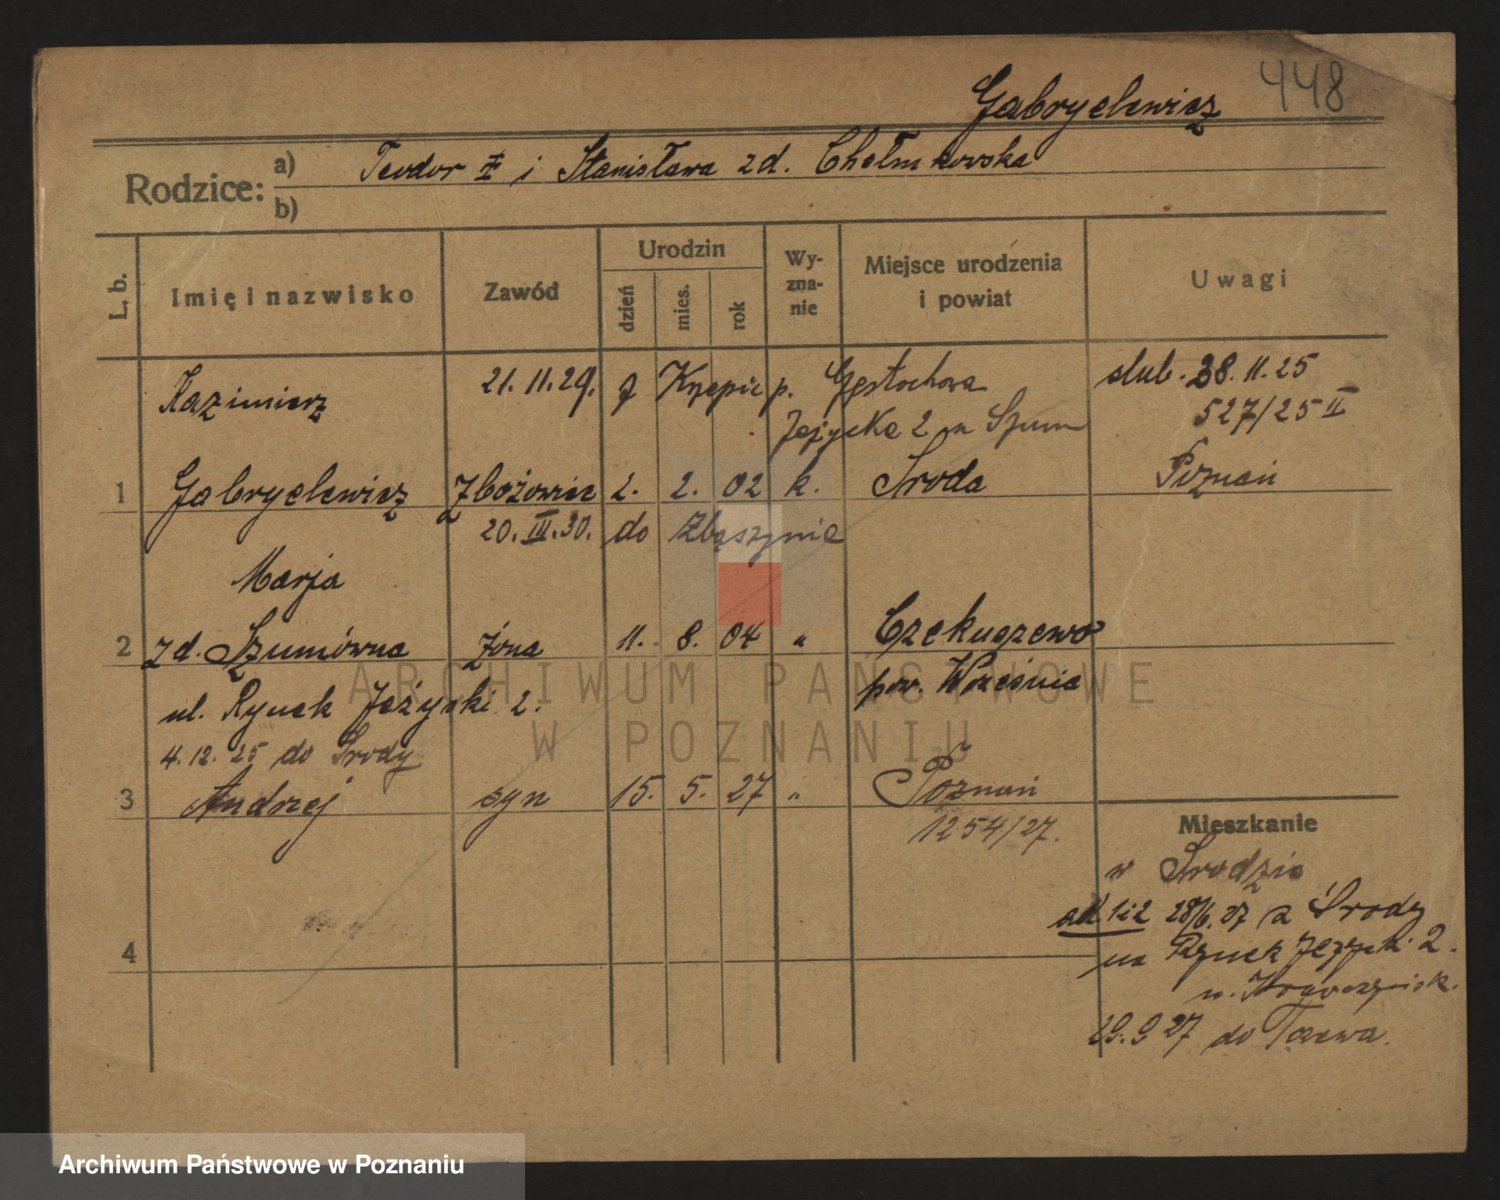 Gabryelewicz 448
Rodzice:
a) Teodor i Stanisława zd. Chełmkowska
b)
L. b.
Imię i nazwisko
Zawód
Urodzin
dzień
mies.
rok
Wy-
zna-
nie
Miejsce urodzenia
i powiat
Uwagi
Kazimierz 21.11.29. z Krzepic p. Częstochowa
ślub. 28.11.25
527/25 II
Jeżycki 2 u Szum
1 Gabryelewicz Zbożowiec 2. 2. 02 k. Środa Poznań
20.III.30. do Zbąszynia
Marja
2 zd. Szumówna żona 11. 8. 04 " Czekuszewo
pow. Września
ul. Rynek Jeżycki 2.
4.12.25 do Środy
3 Andrzej syn 15. 5. 27 " Poznań
1254/27.
Mieszkanie
w Środzie
ad 1i2 28/6.27 z Środy
na Rynek Jeżycki 2.
29.9 27 do Tczewa.
4
ARCHIWUM PAŃSTWOWE
W POZNANIU
Archiwum Państwowe w Poznaniu